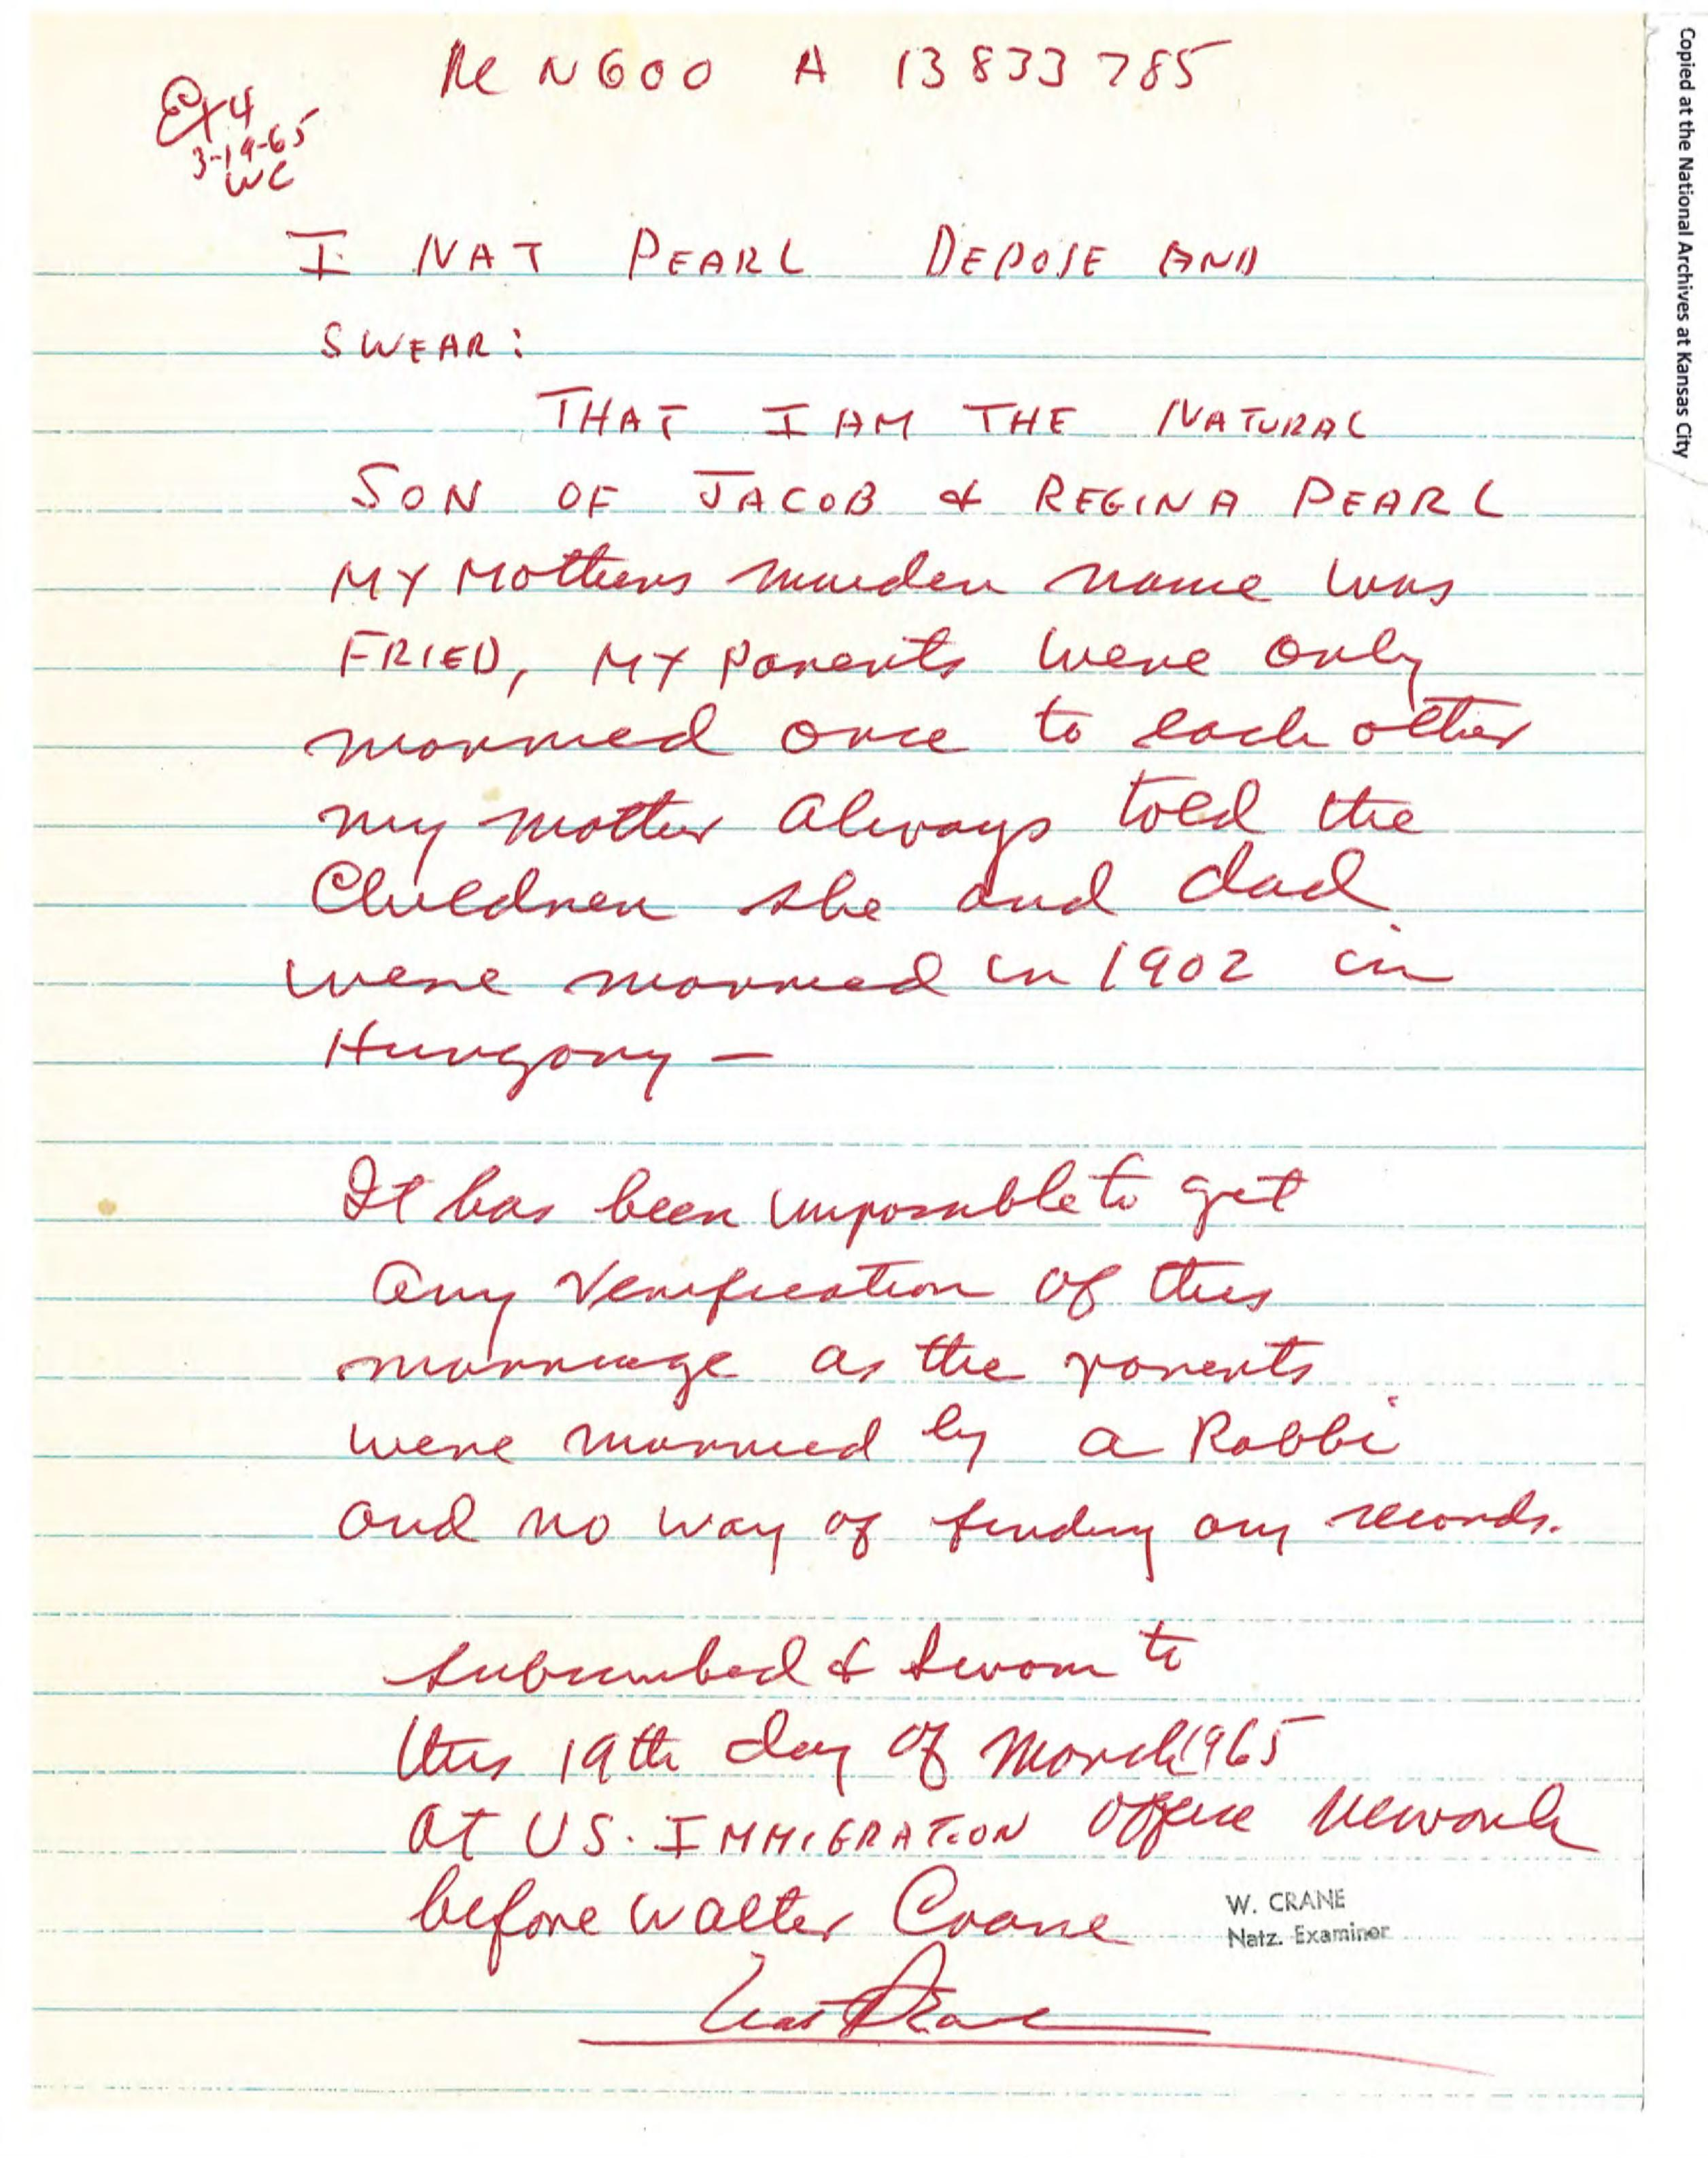 Re N600 A 13833785
Ex 4
3-19-65
WC
I NAT PEARL DEPOSE AND
SWEAR:
THAT I AM THE NATURAL
SON OF JACOB & REGINA PEARL
MY Mothers maiden name was
FRIED, MY parents were only
married once to each other
my mother always told the
Children she and dad
were married in 1902 in
Hungary —
It has been impossible to get
any verification of this
marriage as the parents
were married by a Rabbi
and no way of finding any records.
subscribed & sworn to
this 19th day of March 1965
at US. IMMIGRATION office Newark
before Walter Crane
W. CRANE
Natz. Examiner
Nat Pearl
Copied at the National Archives at Kansas City